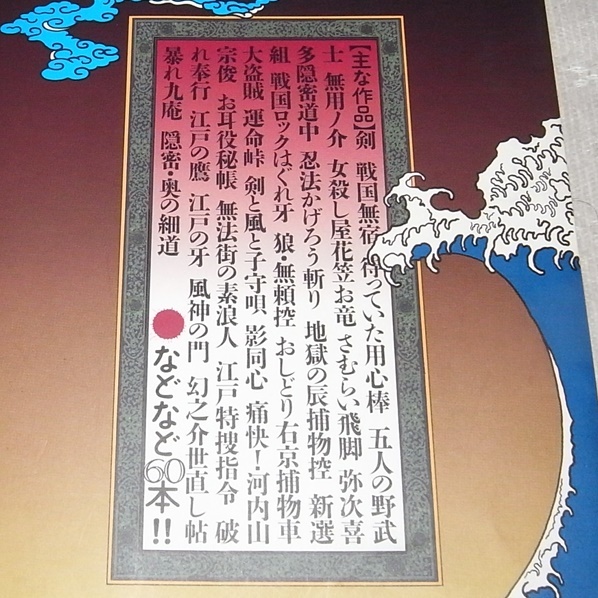 【主な作品】剣 戦国無宿 待っていた用心棒 五人の野武
士 無用ノ介 女殺し屋花笠お竜 さむらい飛脚 弥次喜
多隠密道中 忍法かげろう斬り 地獄の辰捕物控 新選
組 戦国ロックはぐれ牙 狼・無頼控 おしどり右京捕物車
大盗賊 運命峠 剣と風と子守唄 影同心 痛快!河内山
宗俊 お耳役秘帳 無法街の素浪人 江戸特捜指令 破
れ奉行 江戸の鷹 江戸の牙 風神の門 幻之介世直し帖
暴れ九庵 隠密・奥の細道
●などなど60本!!